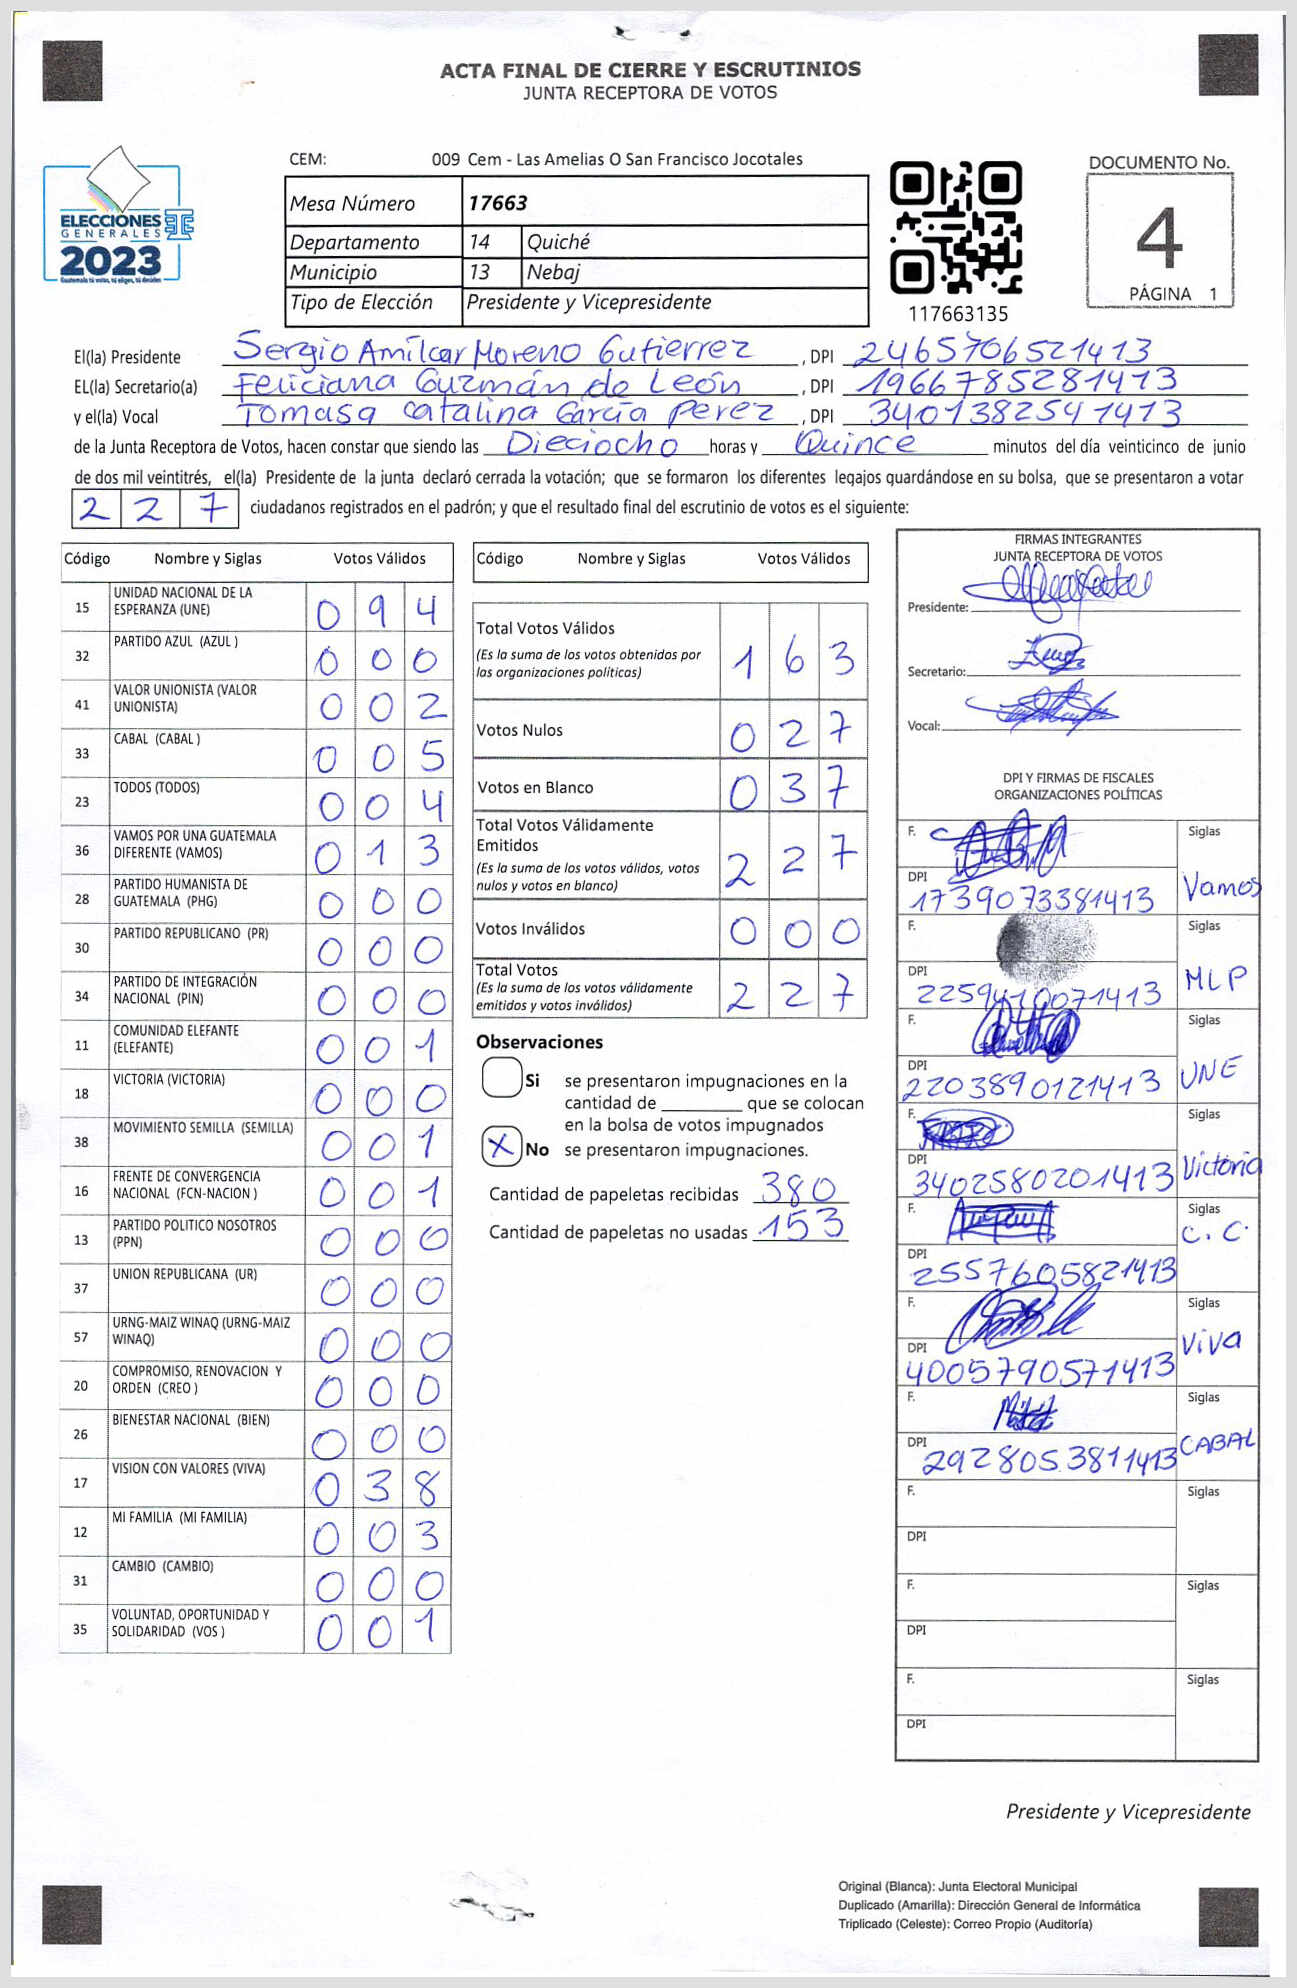 ACTA FINAL DE CIERRE Y ESCRUTINIOS
JUNTA RECEPTORA DE VOTOS
ELECCIONES
GENERALES
2023
Guatemala tú votas, tú eliges, tú decides
CEM: 009 Cem - Las Amelias O San Francisco Jocotales
Mesa Número 17663
Departamento 14 Quiché
Municipio 13 Nebaj
Tipo de Elección Presidente y Vicepresidente
117663135
DOCUMENTO No.
4
PÁGINA 1
El(la) Presidente Sergio Amílcar Moreno Gutierrez , DPI 2465706521413
EL(la) Secretario(a) Feliciana Guzmán de León , DPI 1966785281413
y el(la) Vocal Tomasa Catalina García Perez , DPI 3401382541413
de la Junta Receptora de Votos, hacen constar que siendo las Dieciocho horas y Quince minutos del día veinticinco de junio
de dos mil veintitrés, el(la) Presidente de la junta declaró cerrada la votación; que se formaron los diferentes legajos guardándose en su bolsa, que se presentaron a votar
227 ciudadanos registrados en el padrón; y que el resultado final del escrutinio de votos es el siguiente:
Código Nombre y Siglas Votos Válidos
15 UNIDAD NACIONAL DE LA ESPERANZA (UNE) 094
32 PARTIDO AZUL (AZUL ) 000
41 VALOR UNIONISTA (VALOR UNIONISTA) 002
33 CABAL (CABAL ) 005
23 TODOS (TODOS) 004
36 VAMOS POR UNA GUATEMALA DIFERENTE (VAMOS) 013
28 PARTIDO HUMANISTA DE GUATEMALA (PHG) 000
30 PARTIDO REPUBLICANO (PR) 000
34 PARTIDO DE INTEGRACIÓN NACIONAL (PIN) 000
11 COMUNIDAD ELEFANTE (ELEFANTE) 001
18 VICTORIA (VICTORIA) 000
38 MOVIMIENTO SEMILLA (SEMILLA) 001
16 FRENTE DE CONVERGENCIA NACIONAL (FCN-NACION ) 001
13 PARTIDO POLITICO NOSOTROS (PPN) 000
37 UNION REPUBLICANA (UR) 000
57 URNG-MAIZ WINAQ (URNG-MAIZ WINAQ) 000
20 COMPROMISO, RENOVACION Y ORDEN (CREO ) 000
26 BIENESTAR NACIONAL (BIEN) 000
17 VISION CON VALORES (VIVA) 038
12 MI FAMILIA (MI FAMILIA) 003
31 CAMBIO (CAMBIO) 000
35 VOLUNTAD, OPORTUNIDAD Y SOLIDARIDAD (VOS ) 001
Código Nombre y Siglas Votos Válidos
Total Votos Válidos 163
(Es la suma de los votos obtenidos por
las organizaciones políticas)
Votos Nulos 027
Votos en Blanco 037
Total Votos Válidamente
Emitidos 227
(Es la suma de los votos válidos, votos
nulos y votos en blanco)
Votos Inválidos 000
Total Votos 227
(Es la suma de los votos válidamente
emitidos y votos inválidos)
Observaciones
Si se presentaron impugnaciones en la
cantidad de ________ que se colocan
en la bolsa de votos impugnados
X No se presentaron impugnaciones.
Cantidad de papeletas recibidas 380
Cantidad de papeletas no usadas 153
FIRMAS INTEGRANTES
JUNTA RECEPTORA DE VOTOS
Presidente:
Secretario:
Vocal:
DPI Y FIRMAS DE FISCALES
ORGANIZACIONES POLÍTICAS
F. Siglas
DPI 1739073381413 Vamos
F. Siglas
DPI 2259410071413 MLP
F. Siglas
DPI 2203890121413 UNE
F. Siglas
DPI 3402580201413 Victoria
F. Siglas
DPI 2557605821413 C.C.
F. Siglas
DPI 4005790571413 Viva
F. Siglas
DPI 2928053811413 CABAL
F. Siglas
DPI
F. Siglas
DPI
F. Siglas
DPI
Presidente y Vicepresidente
Original (Blanca): Junta Electoral Municipal
Duplicado (Amarilla): Dirección General de Informática
Triplicado (Celeste): Correo Propio (Auditoría)